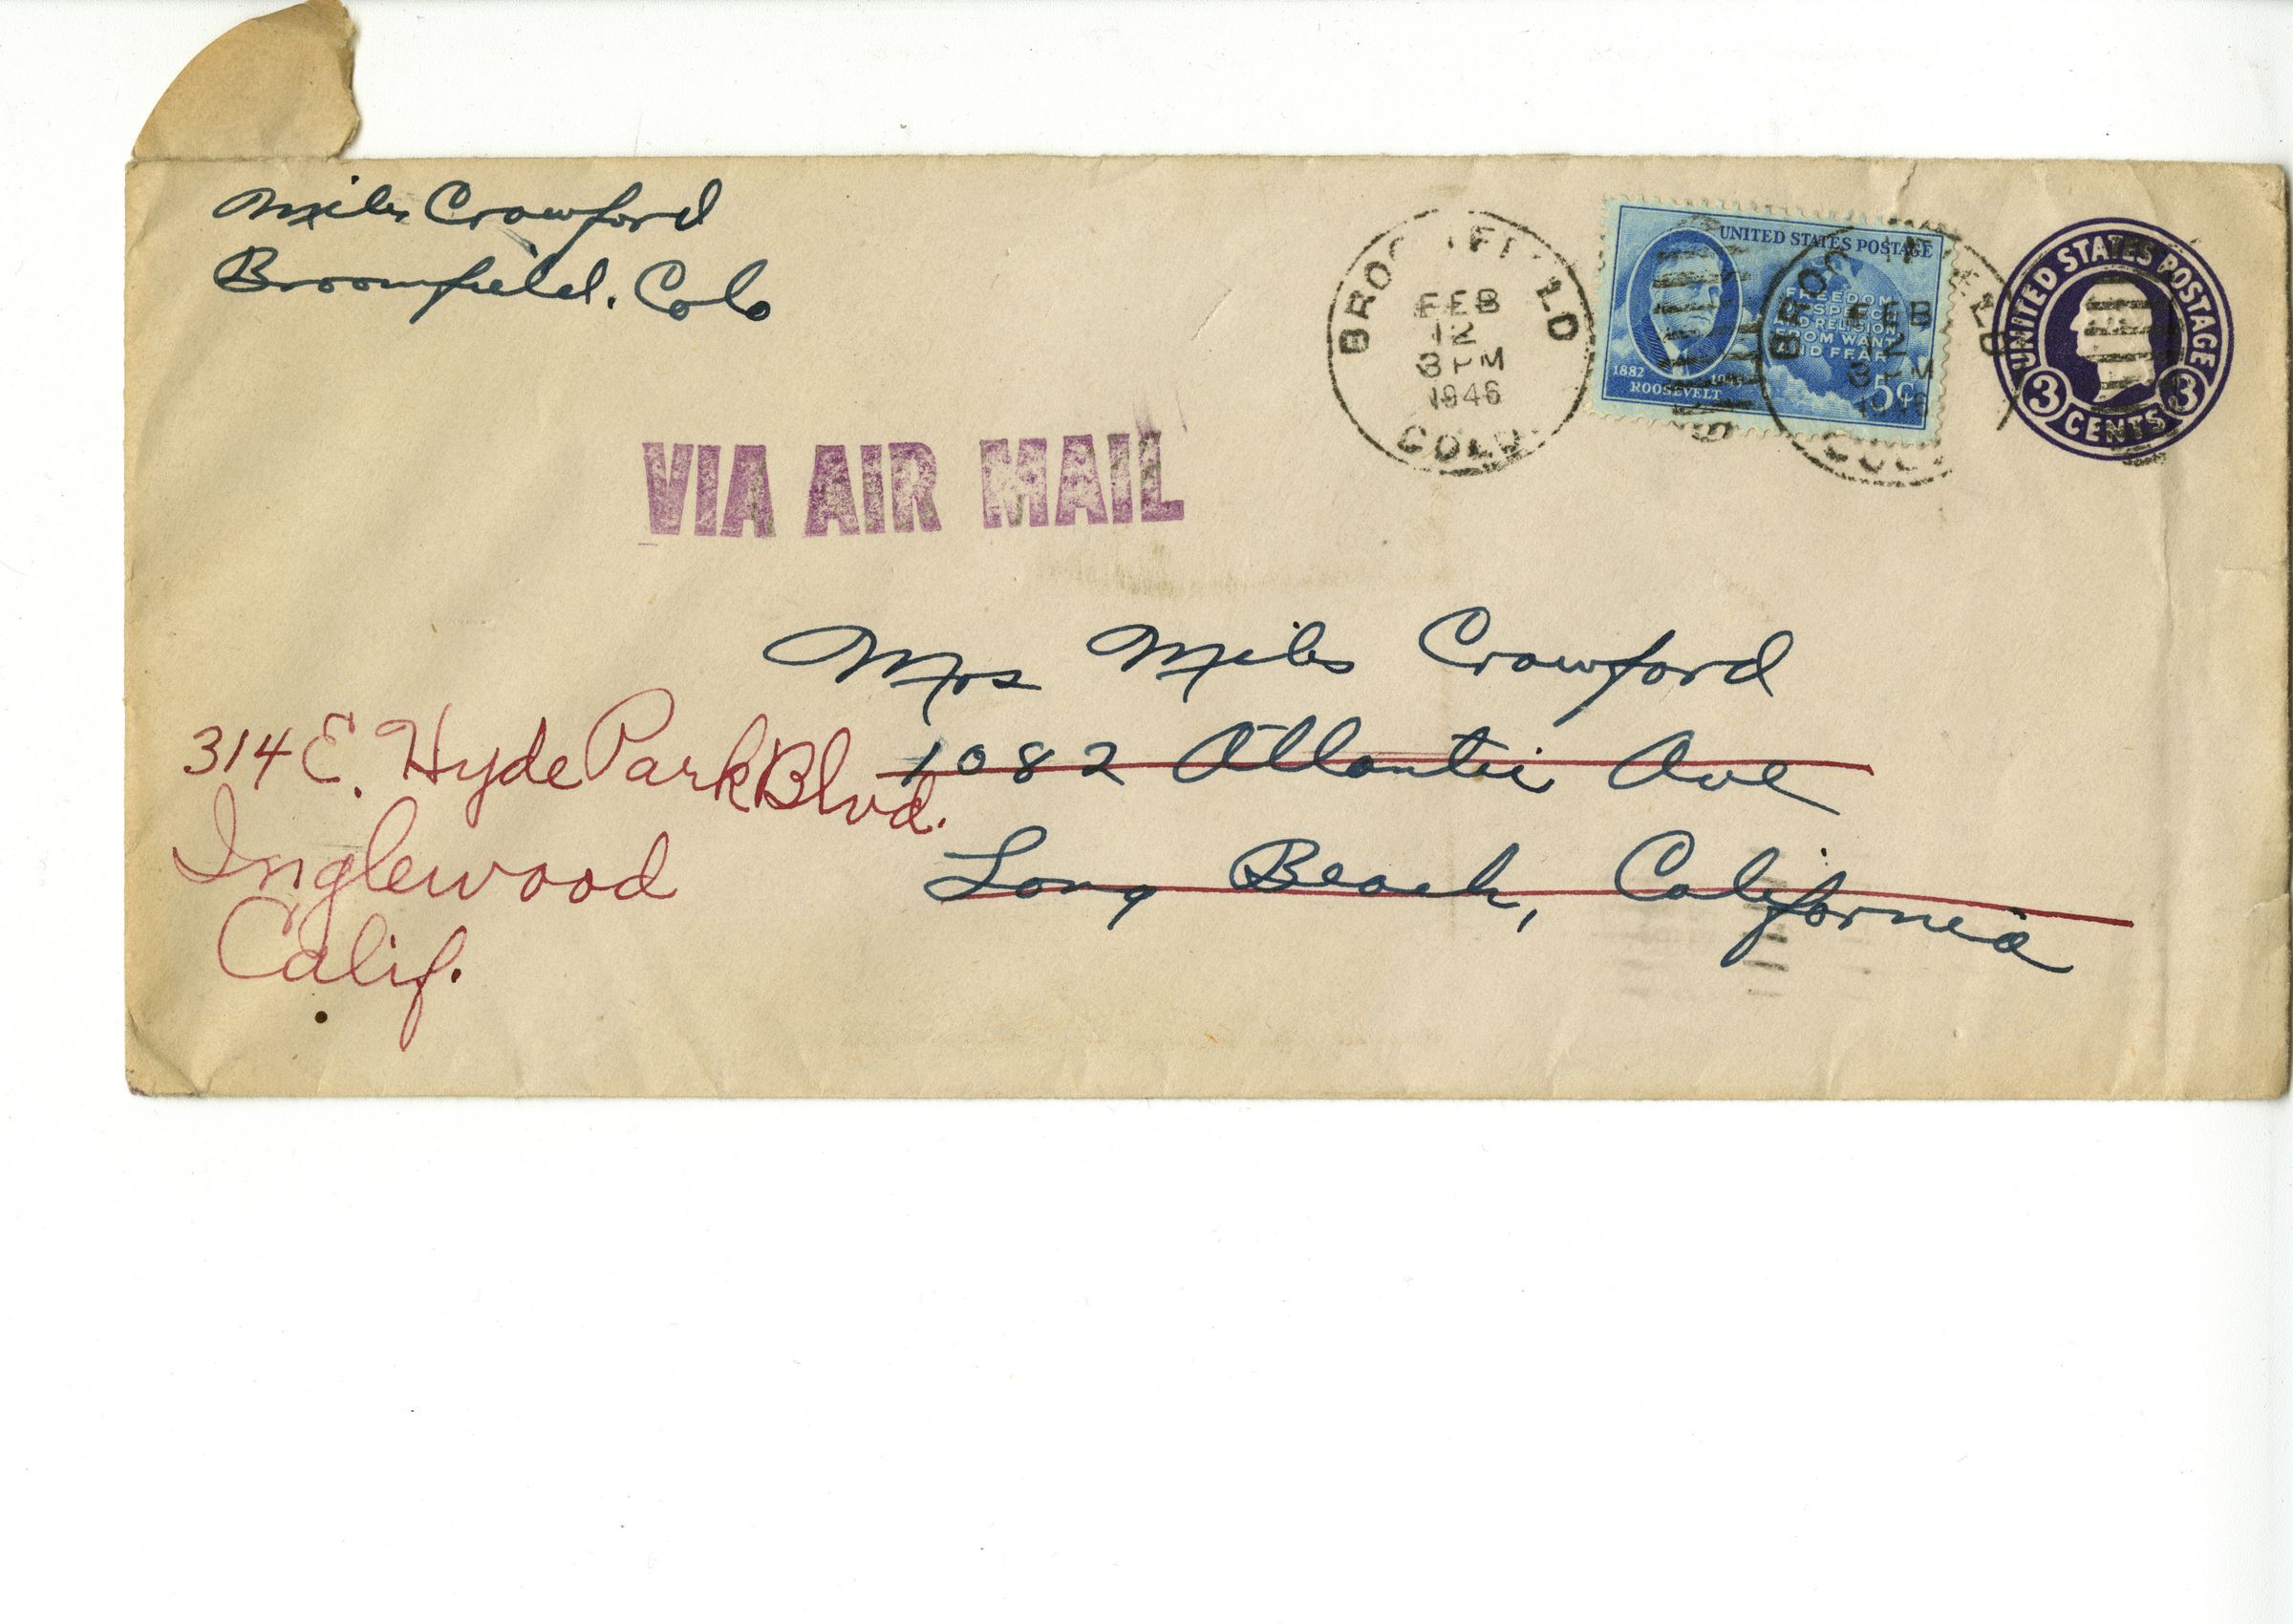 Miles Crawford
Broomfield, Colo
FEB
12
3 PM
1946
COLO.
UNITED STATES POSTAGE
FREEDOM
AND RELIGION
FROM WANT
AND FEAR
1882
ROOSEVELT
5¢
FEB
3 PM
1946
UNITED STATES POSTAGE
3 CENTS 3
VIA AIR MAIL
Mrs Miles Crawford
1082 Atlantic Ave
Long Beach, California
314 E. Hyde Park Blvd.
Inglewood
Calif.